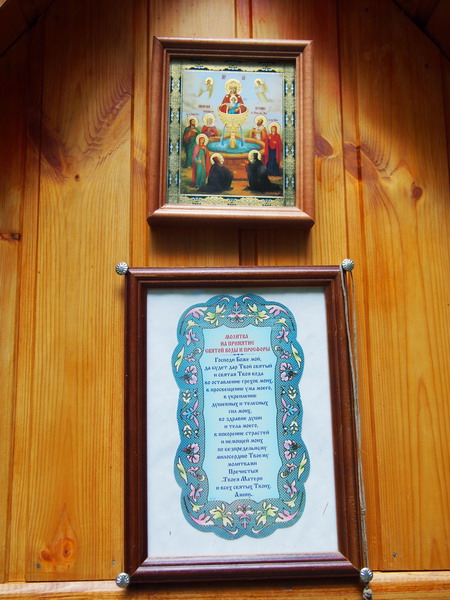 МОЛИТВА
НА ПРИНЯТИЕ
СВЯТОЙ ВОДЫ И ПРОСФОРЫ
Господи Боже мой,
да будет дар Твой святый
и святая Твоя вода
во оставление грехов моих,
в просвещение ума моего,
в укрепление
душевных и телесных
сил моих,
во здравие души
и тела моего,
в покорение страстей
и немощей моих
по безпредельному
милосердию Твоему
молитвами
Пречистыя
Твоея Матери
и всех святых Твоих.
Аминь.